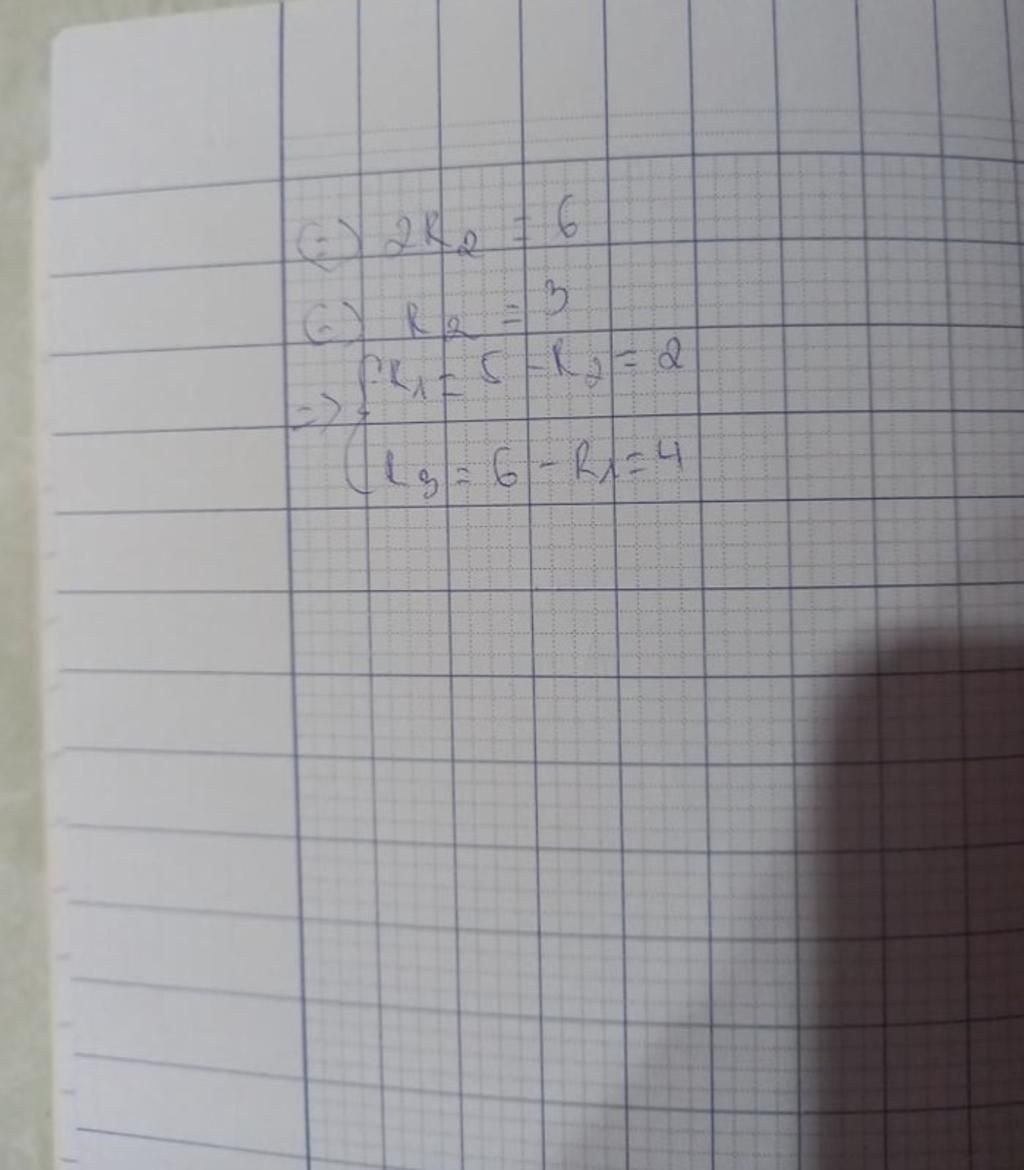 (=) 2R2 = 6
(=) R2 = 3
=> { R1 = 5 - R2 = 2
R3 = 6 - R1 = 4